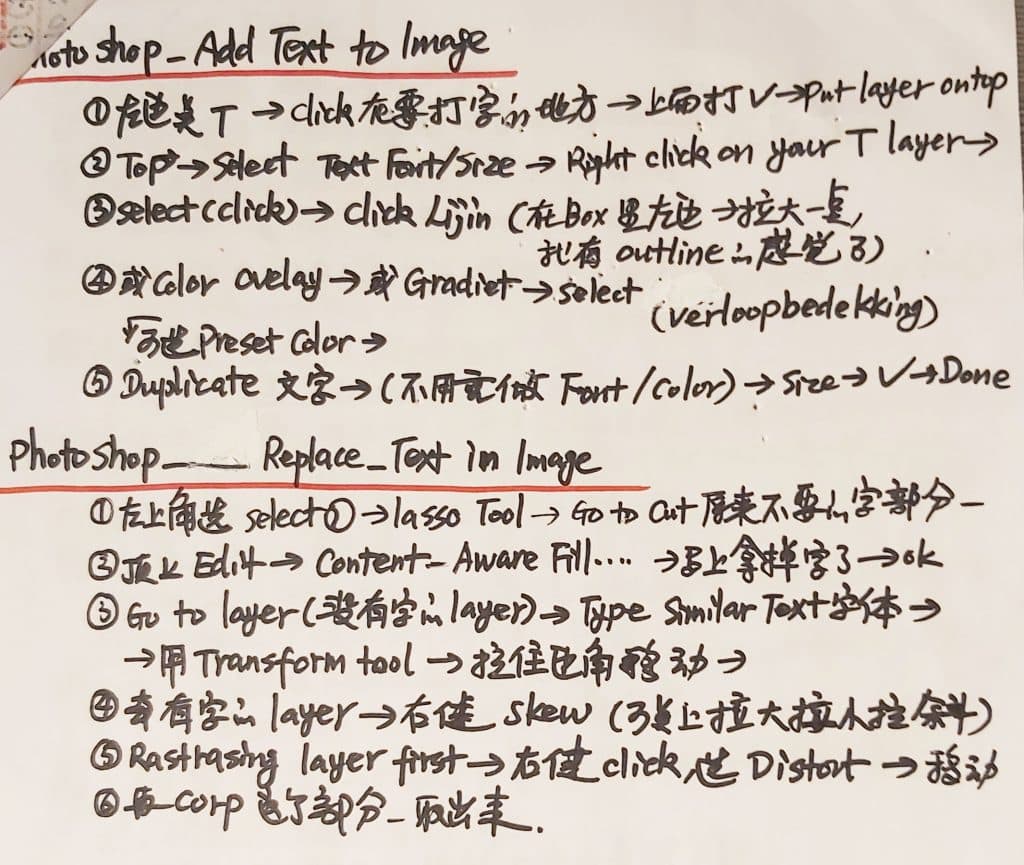 hoto shop_Add Text to Image
①左边点 T → click 在要打字的地方 → 上面打 √ → Put layer on top
② Top → Select Text Font/Size → Right click on your T layer →
③ select (click) → click Lijin (在 Box 里左边 → 拉大一点,
就有 outline 的感觉了)
④ 或 Color ovelay → 或 Gradiet → select (verloopbedekking)
可选 Preset Color →
⑤ Duplicate 文字 → (不用再做 Font/Color) → Size → √ → Done
Photoshop____ Replace_Text in Image
① 左上角选 select② → lasso Tool → Go to Cut 原来不要的字部分 –
② 顶上 Edit → Content-Aware Fill.... → 马上拿掉字了 → ok
③ Go to layer (没有字的 layer) → Type Similar Text 字体 →
→ 用 Transform tool → 拉住边角移动 →
④ 有字的 layer → 右健 Skew (可点上拉大拉小拉斜)
⑤ Rastrasing layer first → 右健 click, 选 Distort → 移动
⑥ Corp 部分 – 取出来.